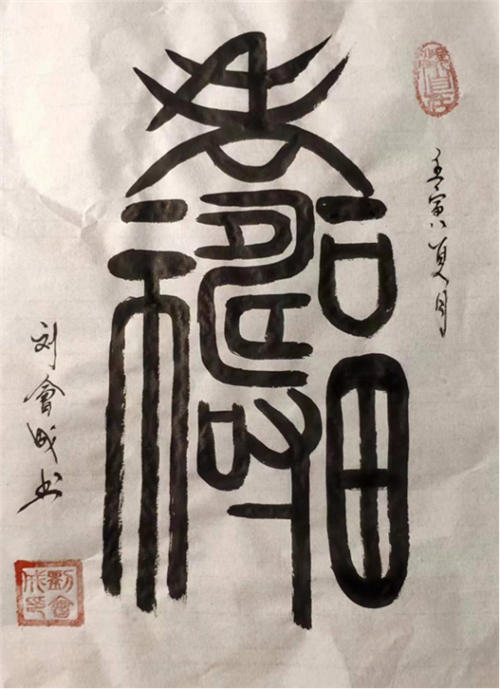 壬寅夏月
福壽
刘會成书
劉會成印